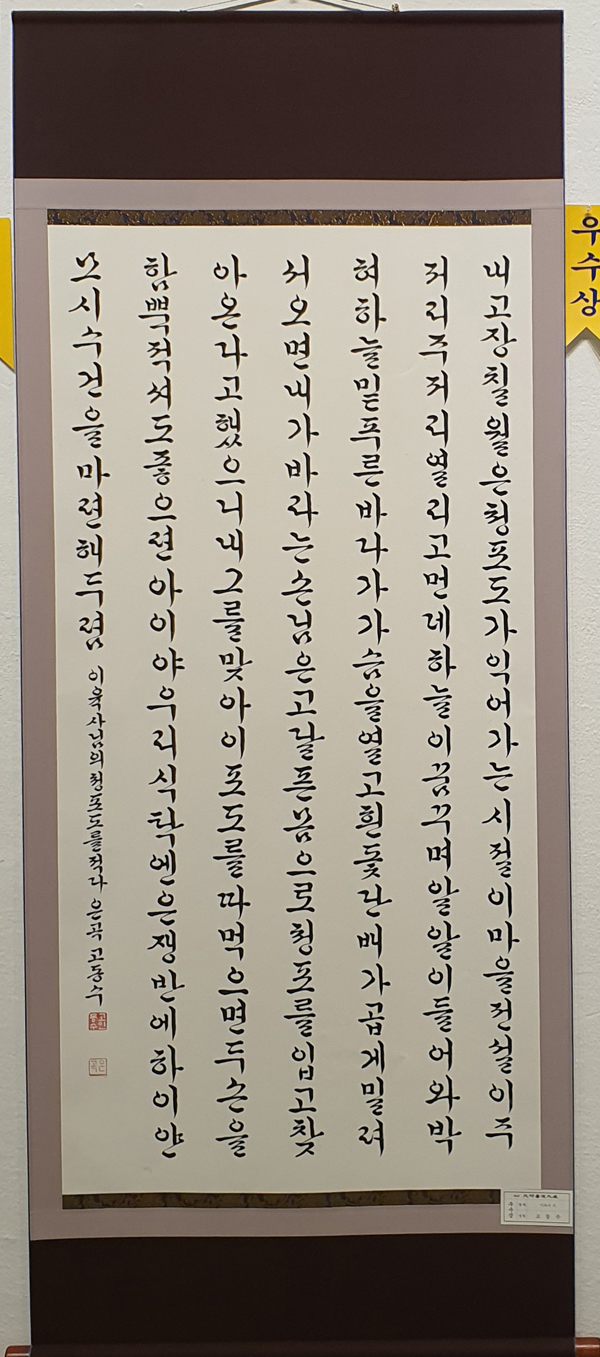 내고장칠월은청포도가익어가는시절이마을전설이주
저리주저리열리고먼데하늘이꿈꾸며알알이들어와박
혀하늘밑푸른바다가가슴을열고흰돛단배가곱게밀려
서오면내가바라는손님은고달픈몸으로청포를입고찾
아온다고했으니내그를맞아이포도를따먹으면두손을
함뿍적셔도좋으련아이야우리식탁엔은쟁반에하이얀
모시수건을마련해두렴 이육사님의청포도를적다 은곡 고동수
우수상
우수상
고동수